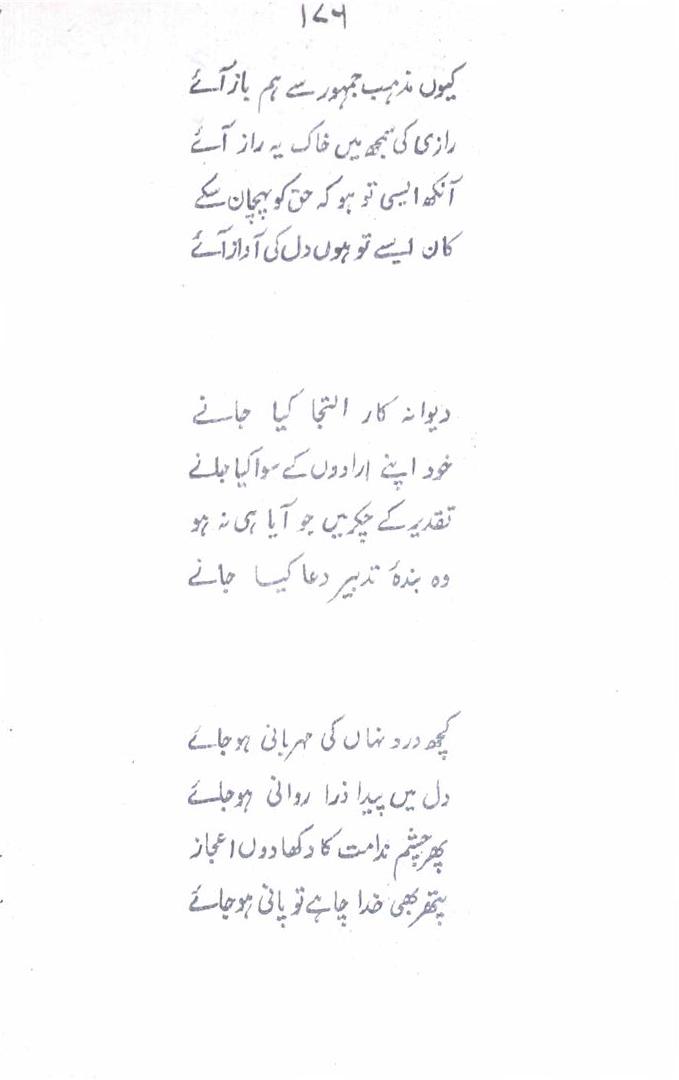 ۱۷۶
کیوں مذہب جمہور سے ہم باز آئے
رازی کی سمجھ میں خاک یہ راز آئے
آنکھ ایسی تو ہو کہ حق کو پہچان سکے
کان ایسے تو ہوں دل کی آواز آئے
دیوانہ کار التجا کیا جانے
خود اپنے ارادوں کے سوا کیا جانے
تقدیر کے چکر میں جو آیا ہی نہ ہو
وہ بندۂ تدبیر دعا کیا جانے
کچھ درد نہاں کی مہربانی ہو جائے
دل میں پیدا ذرا روانی ہو جائے
پھر چشم ندامت کا دکھا دوں اعجاز
پتھر بھی خدا چاہے تو پانی ہو جائے